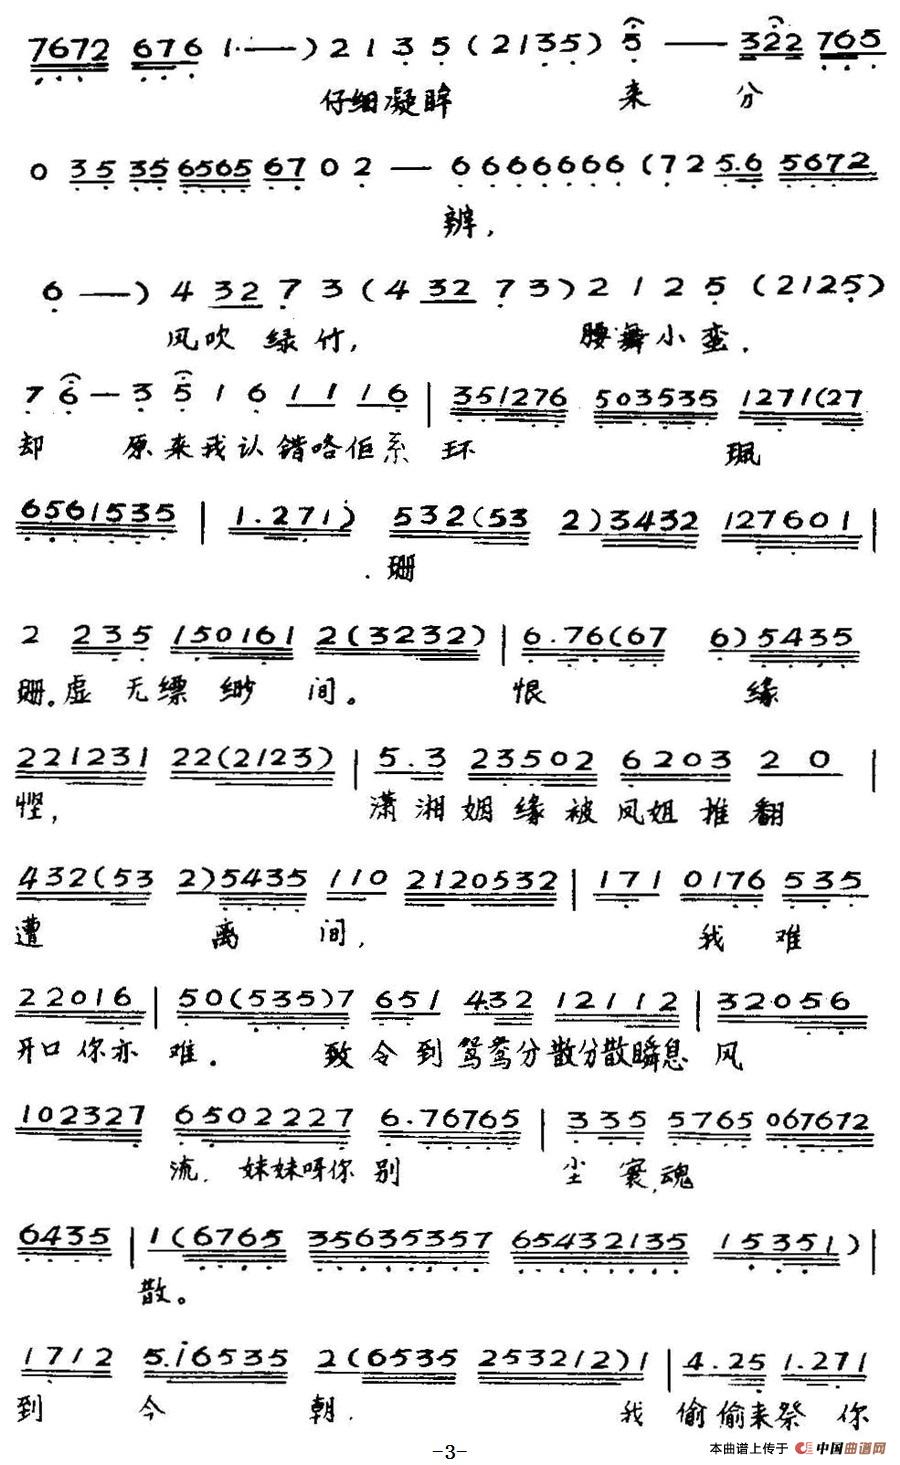 7672 676 1·——) 2 1 3 5 (2135) 5 —— 322 765
仔细凝眸 来 分
0 35 35 6565 67 0 2 — 6 6666666 (7 2 5.6 5672
辨，
6 ——) 4 32 7 3 (4 32 7 3) 2 1 2 5 (2125)
风吹 绿竹， 腰舞小蛮．
7 6 — 3 5 1 6 11 16 | 351276 503535 1271(27
却 原来我认错咯佢系 环 珮
6561535 | 1.271) 532(53 2)3432 127601 |
珊
2 235 150161 2(3232) | 6.76(67 6)5435
珊。虚 无缥 缈 间。 恨 缘
221231 22(2123) | 5.3 23502 6203 2 0 |
悭， 潇湘姻缘被凤姐推翻
432(53 2)5435 110 2120532 | 171 0176 535
遭 离 间， 我 难
22016 | 50(535)7 651 4.32 12112 | 32·056
开口你亦 难。 致令到鸳鸯分散分散瞬息 风
102327 6502227 6.76765 | 335 5765 067672
流，妹妹呀你别 尘寰，魂
6435 | 1(6765 35635357 65432135 15351) |
散。
1712 5.i6535 2(6535 253212)1 | 4.25 1.271
到 今 朝． 我 偷偷来祭 你
-3-
本曲谱上传于 中国曲谱网